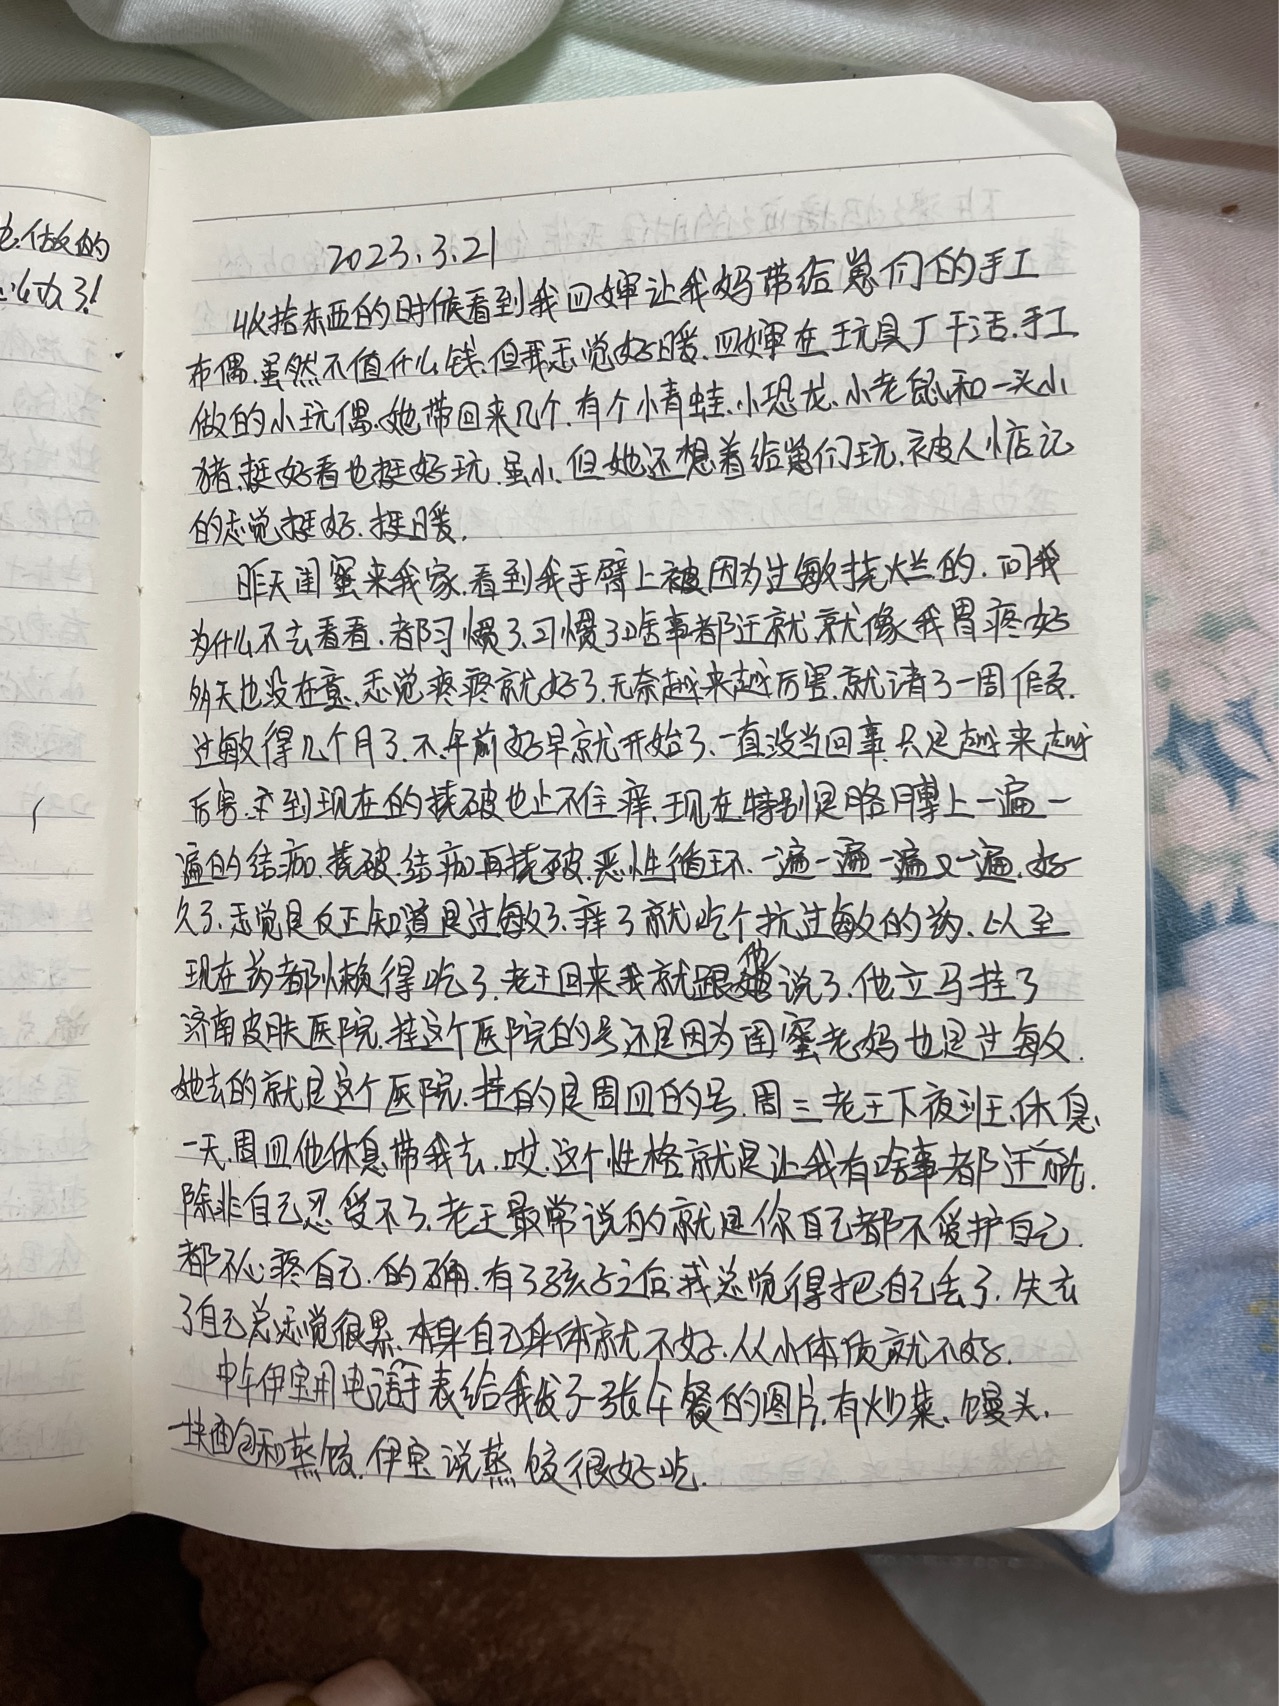 也.做的
办了!
2023.3.21
收拾东西的时候看到我四婶让我妈带给崽们的手工
布偶.虽然不值什么钱.但我感觉好暖.四婶在玩具厂干活.手工
做的小玩偶.她带回来几个.有个小青蛙.小恐龙.小老鼠和一头小
猪.挺好看也挺好玩.虽小.但她还想着给崽们玩.被人惦记
的感觉挺好.挺暖.
昨天闺蜜来我家.看到我手臂上被因为过敏挠烂的.问我
为什么不去看看.都习惯了.习惯了啥事都迁就.就像我胃疼好
多天也没在意.感觉疼疼就好了.无奈越来越厉害.就请了一周假.
过敏得几个月了.不.年前好早就开始了.一直没当回事.只是越来越
厉害.到现在的挠破也止不住痒.现在特别是胳膊上一遍一
遍的结痂.挠破.结痂再挠破.恶性循环.一遍一遍一遍又一遍.好
久了.感觉是反正知道是过敏了.痒了就吃个抗过敏的药.以至
现在药都懒得吃了.老王回来我就跟他说了.他立马挂了
济南皮肤医院.挂这个医院的号还是因为闺蜜老妈也是过敏.
她去的就是这个医院.挂的是周四的号.周三老王下夜班.休息
一天.周四他休息带我去.哎.这个性格就是让我有啥事都迁就.
除非自己忍受不了.老王最常说的就是你自己都不爱护自己.
都不心疼自己.的确.有了孩子之后.我总觉得把自己丢了.失去
了自己总感觉很累.本身自己身体就不好.从小体质就不好.
中午伊宝用电话手表给我发了张午餐的图片.有炒菜.馒头.
一块面包和蒸饺.伊宝说蒸饺很好吃.